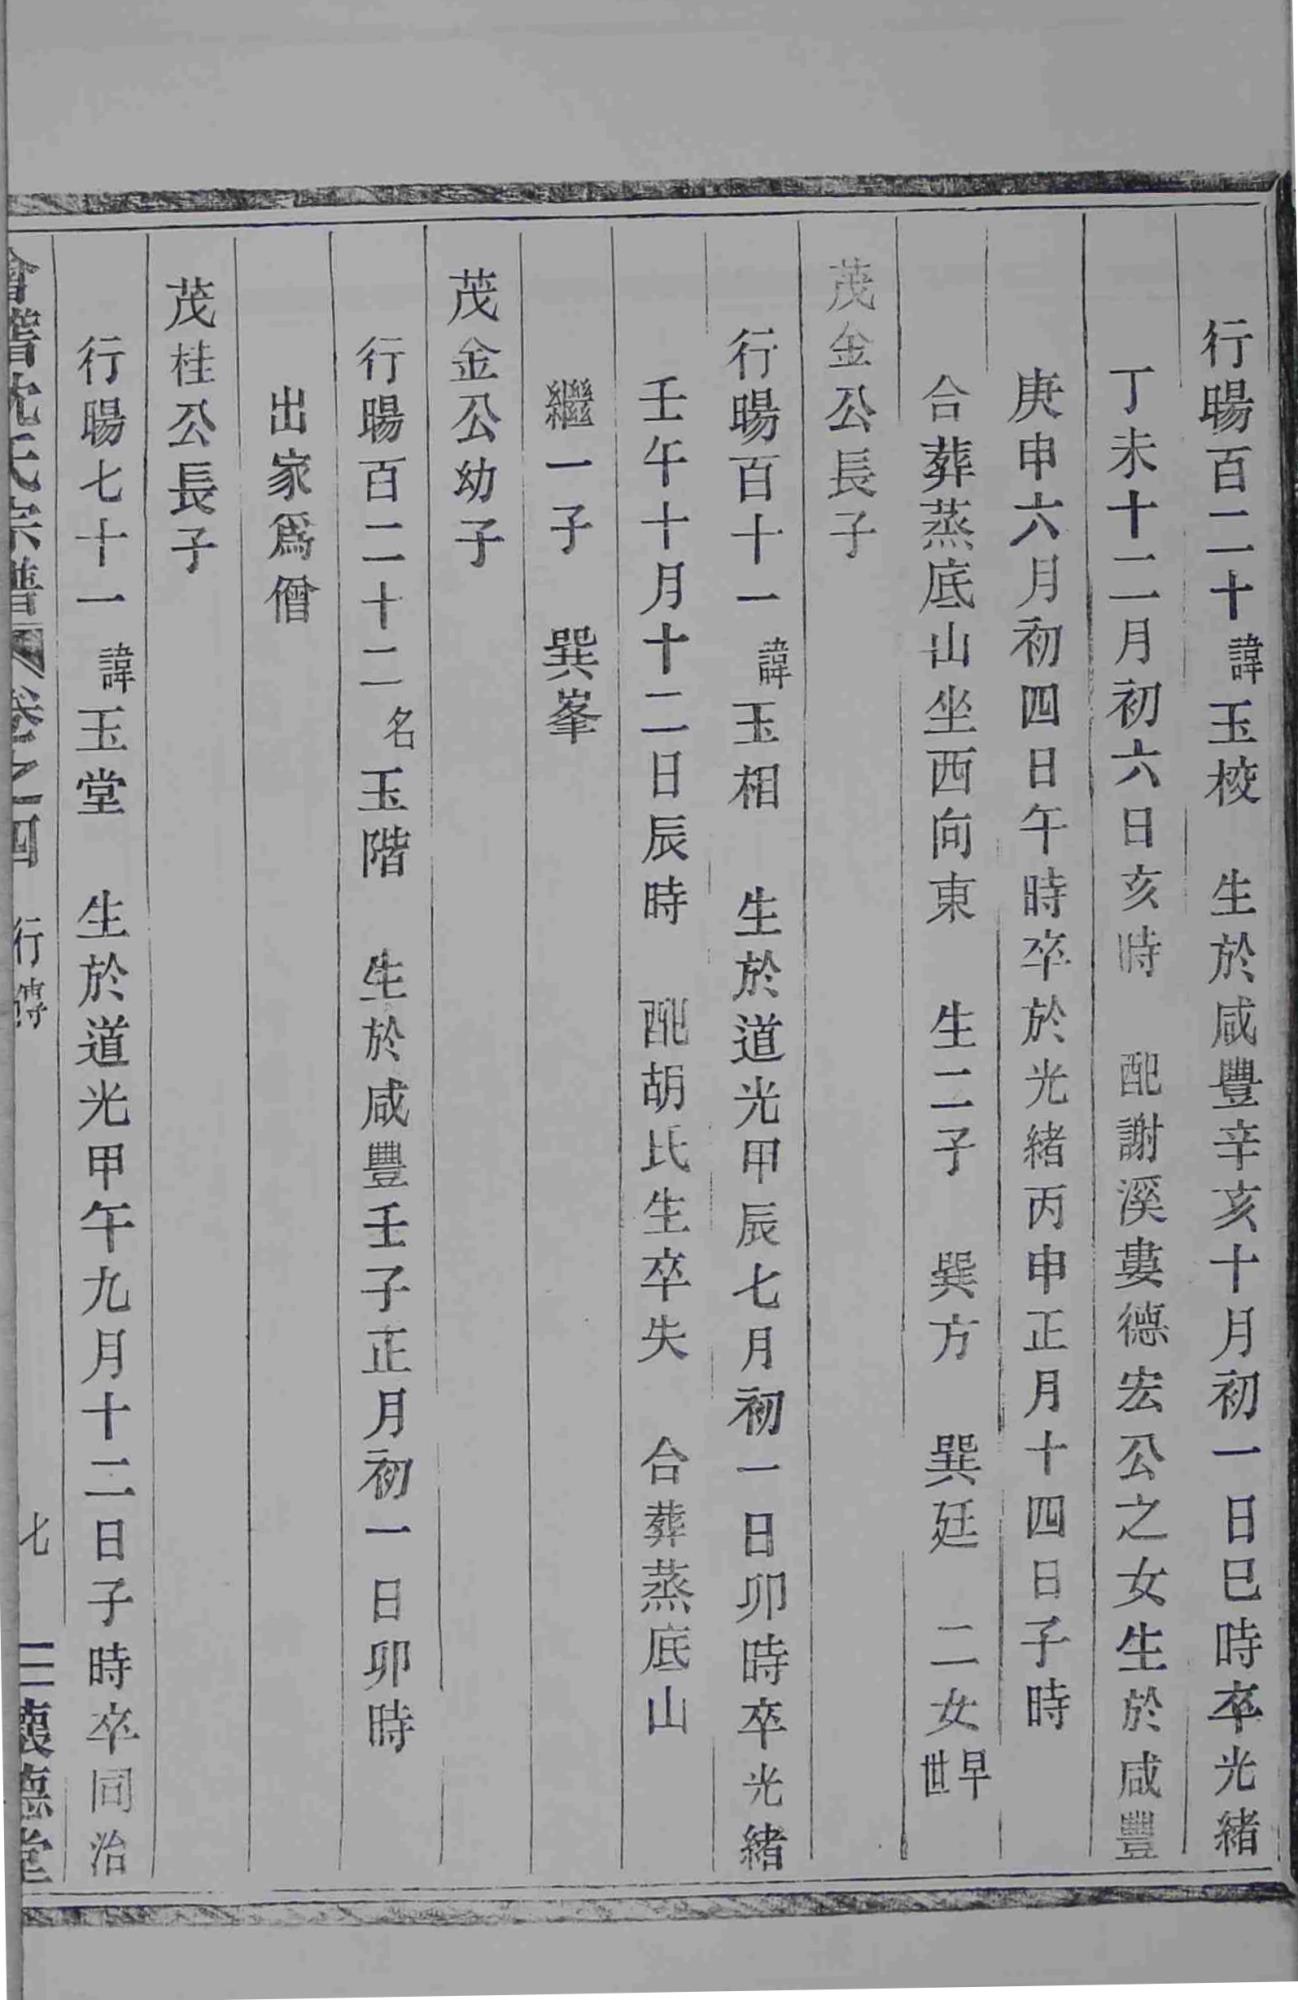 行暘百二十諱玉校　生於咸豐辛亥十月初一日巳時卒光緒
丁未十二月初六日亥時　配謝溪婁德宏公之女生於咸豐
庚申六月初四日午時卒於光緒丙申正月十四日子時
合葬蒸底山坐西向東　生二子　巽方　巽廷　二女早世
茂金公長子
行暘百十一諱玉相　生於道光甲辰七月初一日卯時卒光緒
壬午十月十二日辰時　配胡氏生卒失　合葬蒸底山
繼一子　巽峯
茂金公幼子
行暘百二十二名玉階　生於咸豐壬子正月初一日卯時
出家爲僧
茂桂公長子
行暘七十一諱玉堂　生於道光甲午九月十二日子時卒同治
會稽沈氏宗譜　卷之四　行傳　七　懷德堂